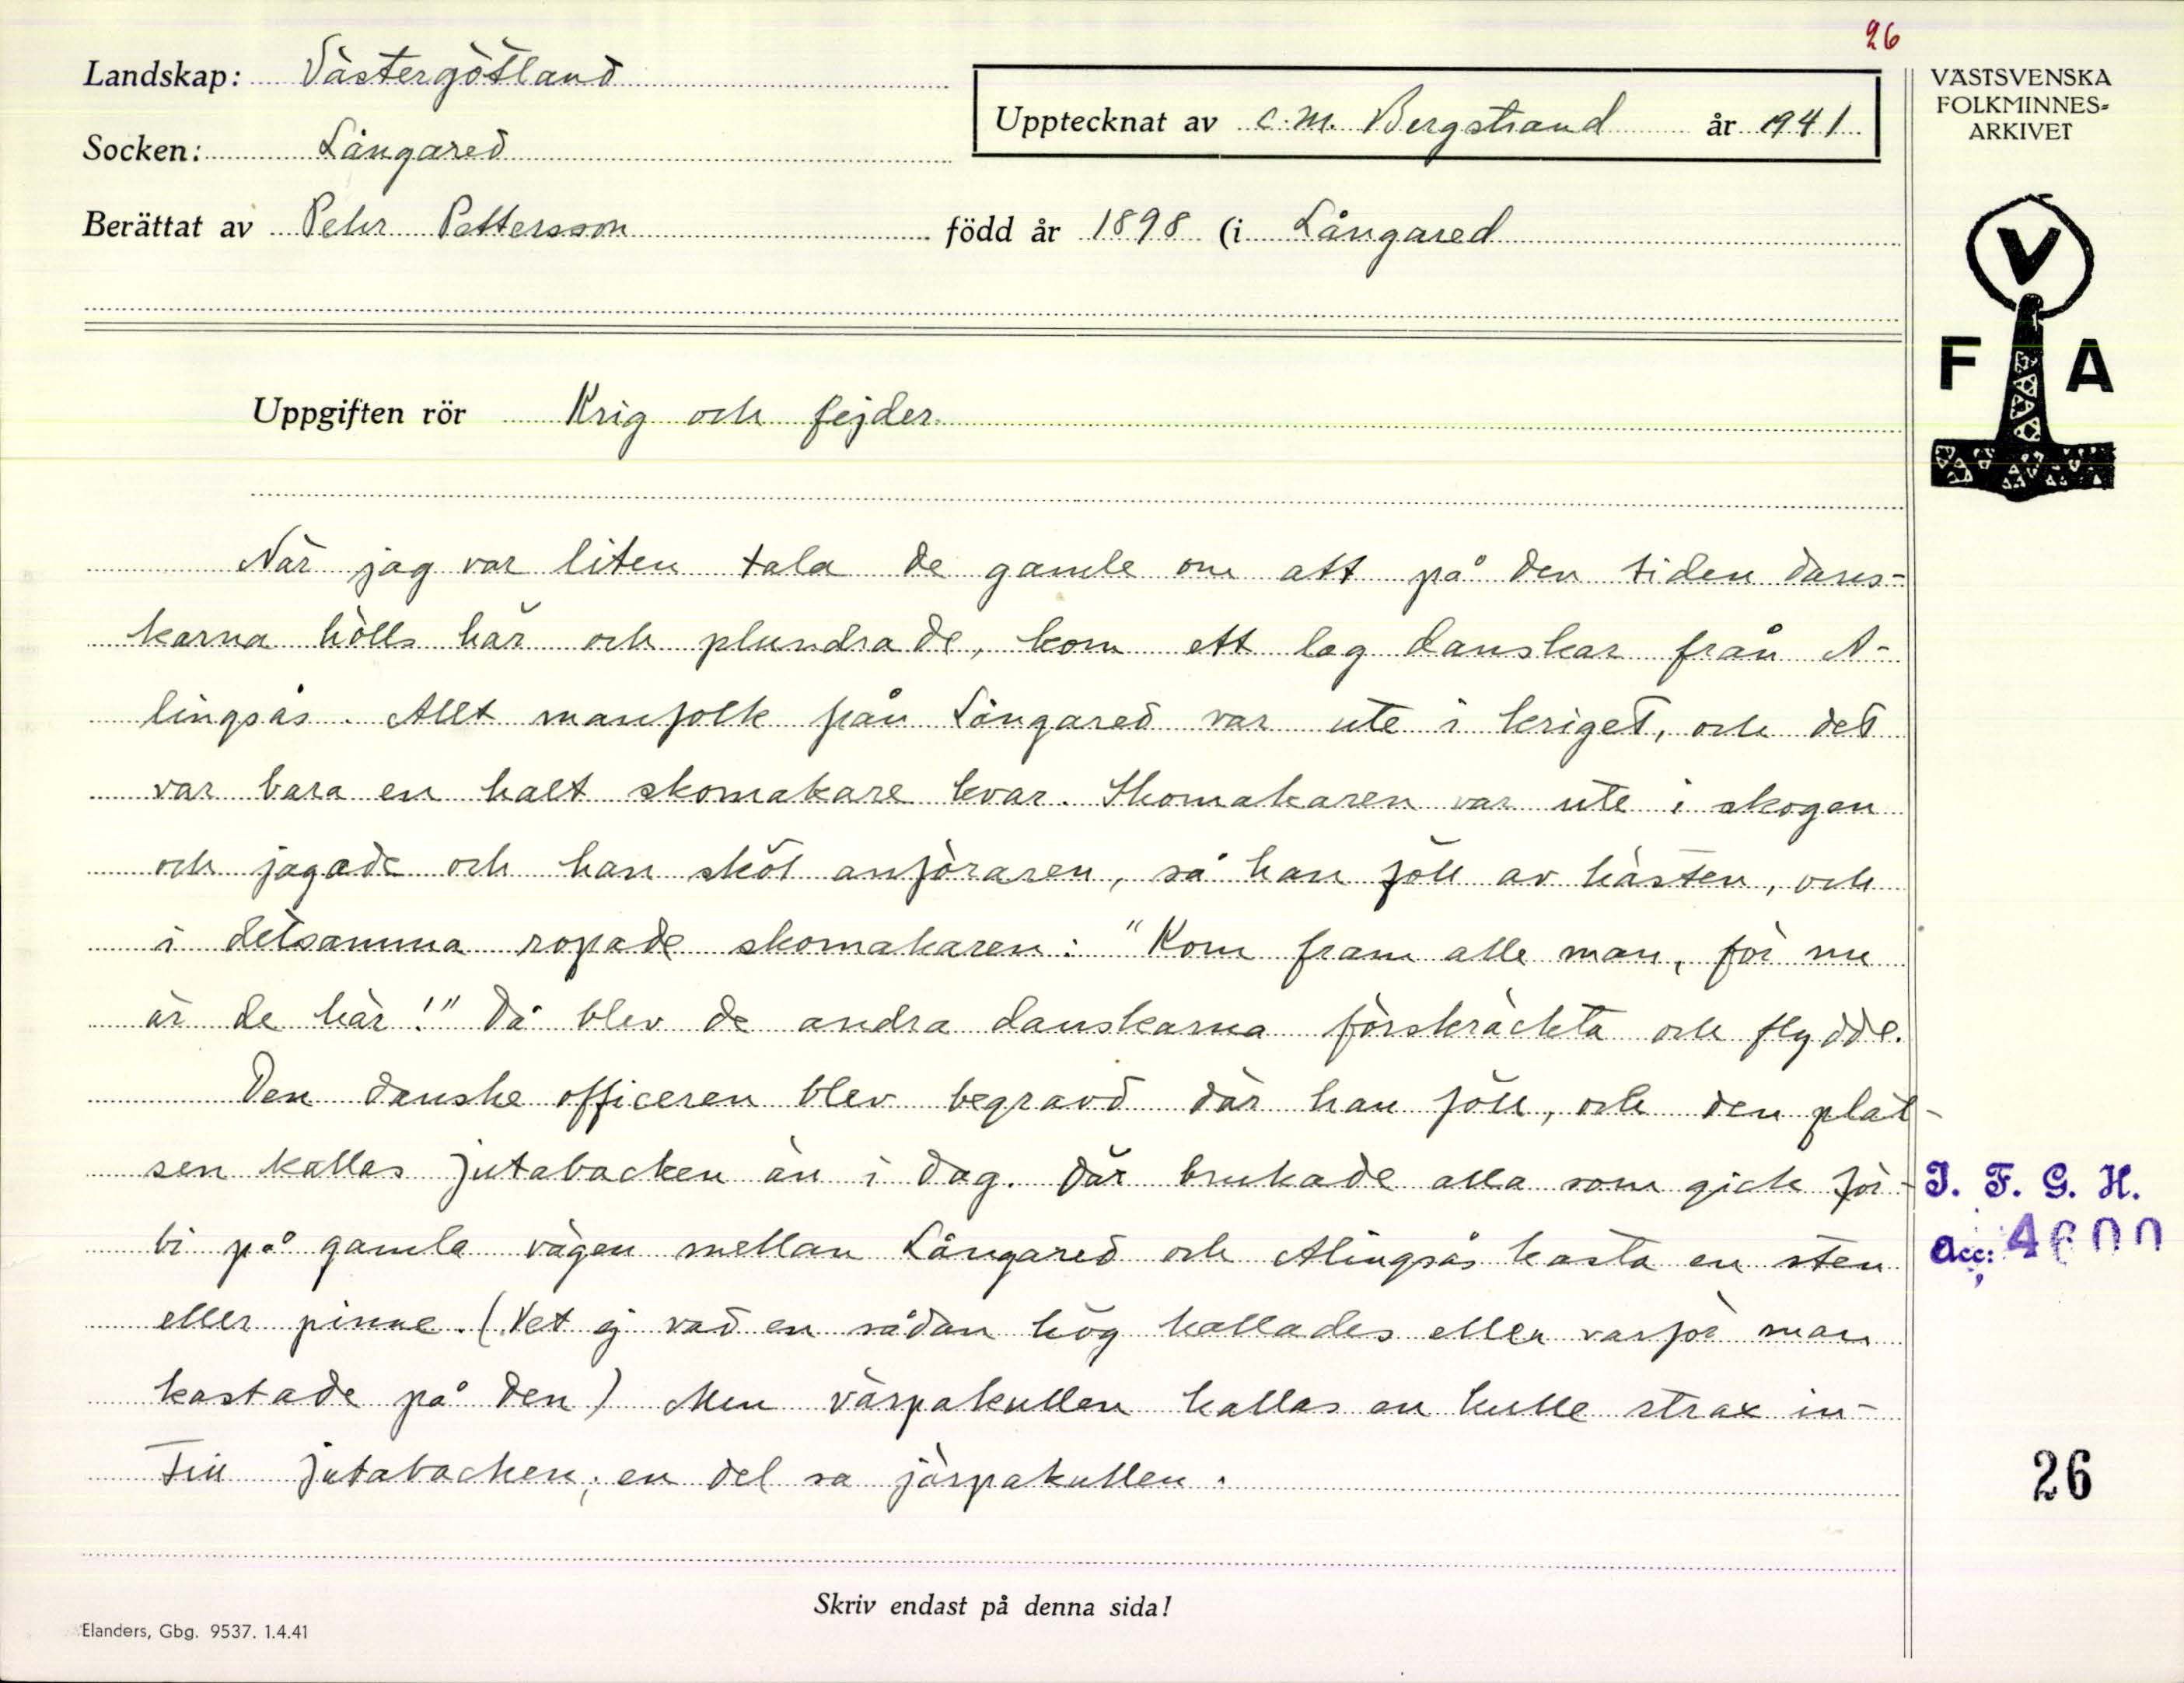 26
Landskap: Västergötland
Upptecknat av C. M. Bergstrand år 1941
VÄSTSVENSKA
FOLKMINNES-
ARKIVET
Socken: Långared
Berättat av Pehr Pettersson född år 1898 (i Långared
V
F A
Uppgiften rör Krig och fejder.
När jag var liten tala de gamle om att på den tiden dans-
karna hölls här och plundrade, kom ett lag danskar från A-
lingsås. Allt manfolk från Långared var ute i kriget, och det
var bara en halt skomakare kvar. Skomakaren var ute i skogen
och jagade och han sköt anföraren, så han föll av hästen, och
i detsamma ropade skomakaren: "Kom fram alle man, för nu
är de här!" Då blev de andra danskarna förskräckta och flydde.
Den danske officeren blev begravd där han föll, och den plat-
sen kallas Jutabacken än i dag. Där brukade alla som gick för-
bi på gamla vägen mellan Långared och Alingsås kasta en sten
eller pinne. (Vet ej vad en sådan hög kallades eller varför man
kastade på den) Men värpakullen kallas en kulle strax in-
till Jutabacken; en del sa järpakullen.
I. F. G. H.
Acc: 4600
26
Skriv endast på denna sida!
Elanders, Gbg. 9537. 1.4.41